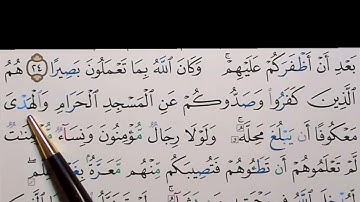 بَعْدِ أَنْ أَظْفَرَكُمْ عَلَيْهِمْ ۚ وَكَانَ اللَّهُ بِمَا تَعْمَلُونَ بَصِيرًا ﴿٢٤﴾ هُمُ
الَّذِينَ كَفَرُوا وَصَدُّوكُمْ عَنِ الْمَسْجِدِ الْحَرَامِ وَالْهَدْيَ
مَعْكُوفًا أَن يَبْلُغَ مَحِلَّهُ ۚ وَلَوْلَا رِجَالٌ مُّؤْمِنُونَ وَنِسَاءٌ مُّؤْمِنَاتٌ
لَّمْ تَعْلَمُوهُمْ أَن تَطَئُوهُمْ فَتُصِيبَكُم مِّنْهُم مَّعَرَّةٌ بِغَيْرِ عِلْمٍ ۖ